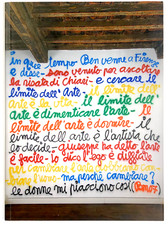 in quel tempo Ben venne a Firenze
e disse - sono venuto per ascoltare
la risata di Chiari - e cercare il
limite dell'Arte - il limite dell'
arte è la vita - il limite dell'
arte è dimenticare l'arte - il
limite dell'arte è dormire - il
limite dell'arte è l'artista che
lo decide - giuseppe ha detto l'arte
è facile - io dico l'ego è difficile
per cambiare l'arte bisogna cam
biare l'uomo - ma perchè cambiare?
le donne mi piacciono così (Ben 07)